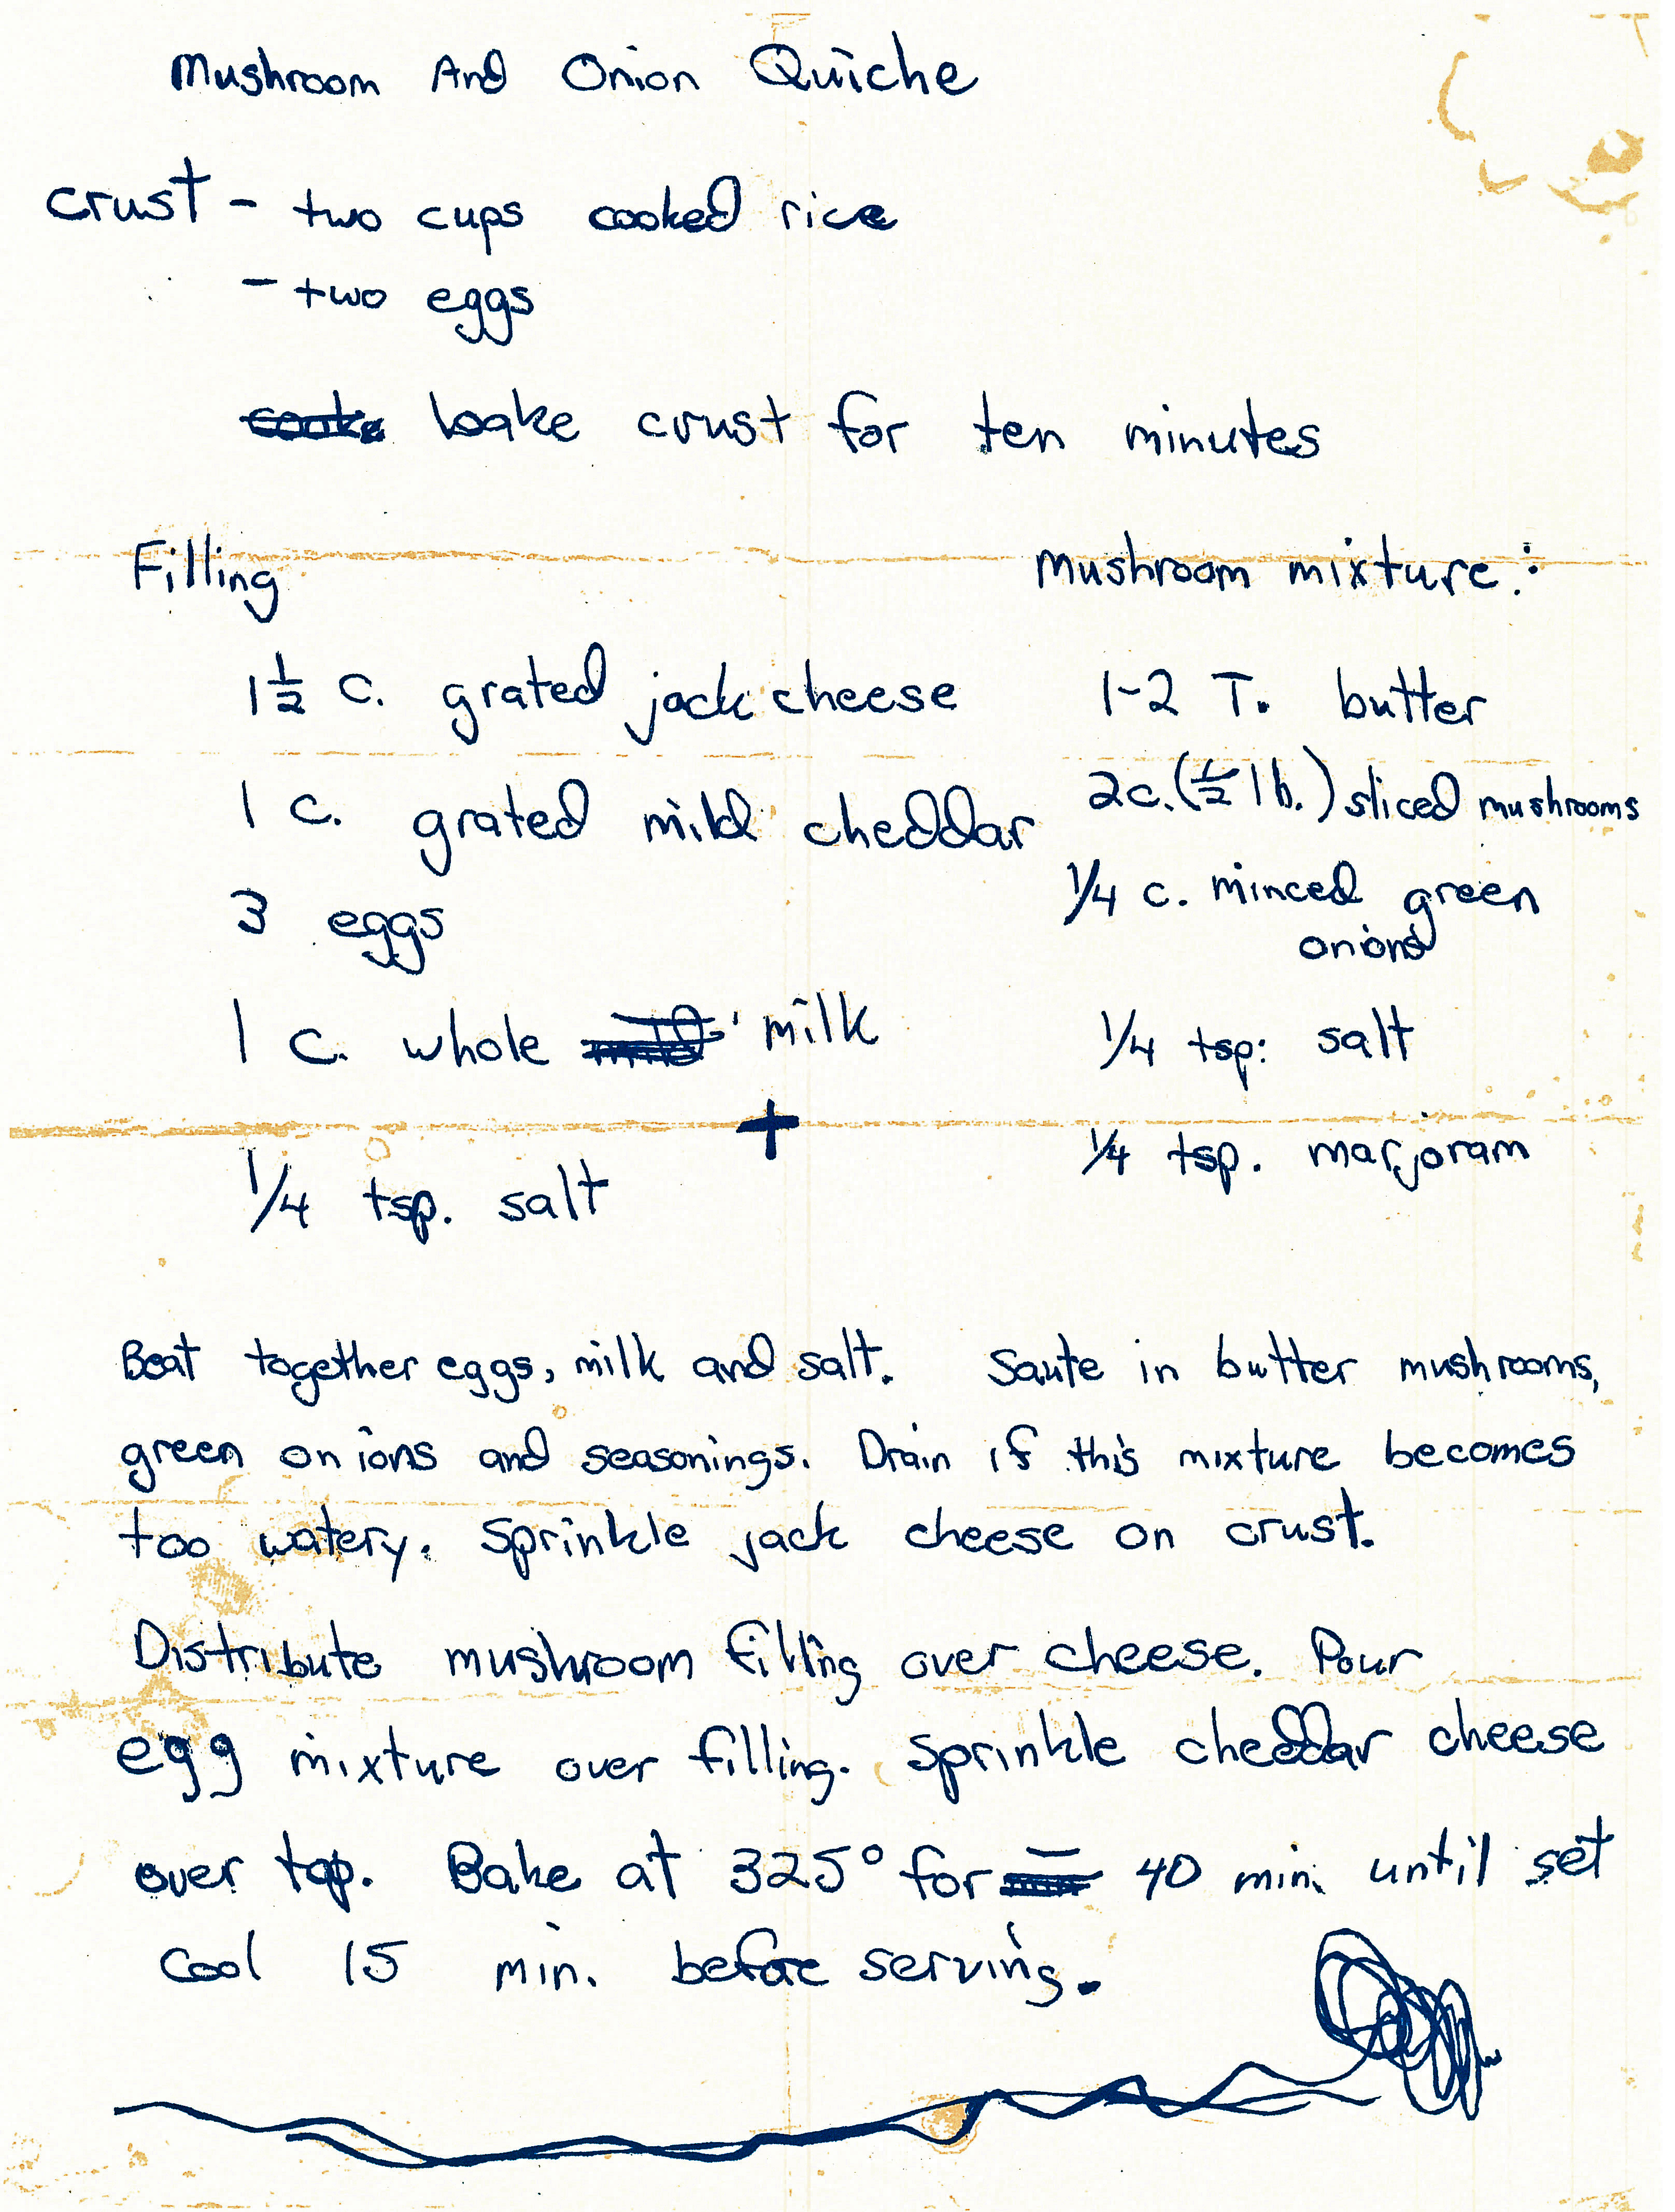 Mushroom And Onion Quiche
crust - two cups cooked rice
- two eggs
bake crust for ten minutes
Filling
1 1/2 c. grated jack cheese
1 c. grated mild cheddar
3 eggs
1 c. whole milk
+
1/4 tsp. salt
Mushroom mixture:
1-2 T. butter
2c. (1/2 lb.) sliced mushrooms
1/4 c. minced green
onions
1/4 tsp. salt
1/4 tsp. marjoram
Beat together eggs, milk and salt. Saute in butter mushrooms,
green onions and seasonings. Drain if this mixture becomes
too watery. Sprinkle jack cheese on crust.
Distribute mushroom filling over cheese. Pour
egg mixture over filling. Sprinkle cheddar cheese
over top. Bake at 325° for 40 min. until set
Cool 15 min. before serving.